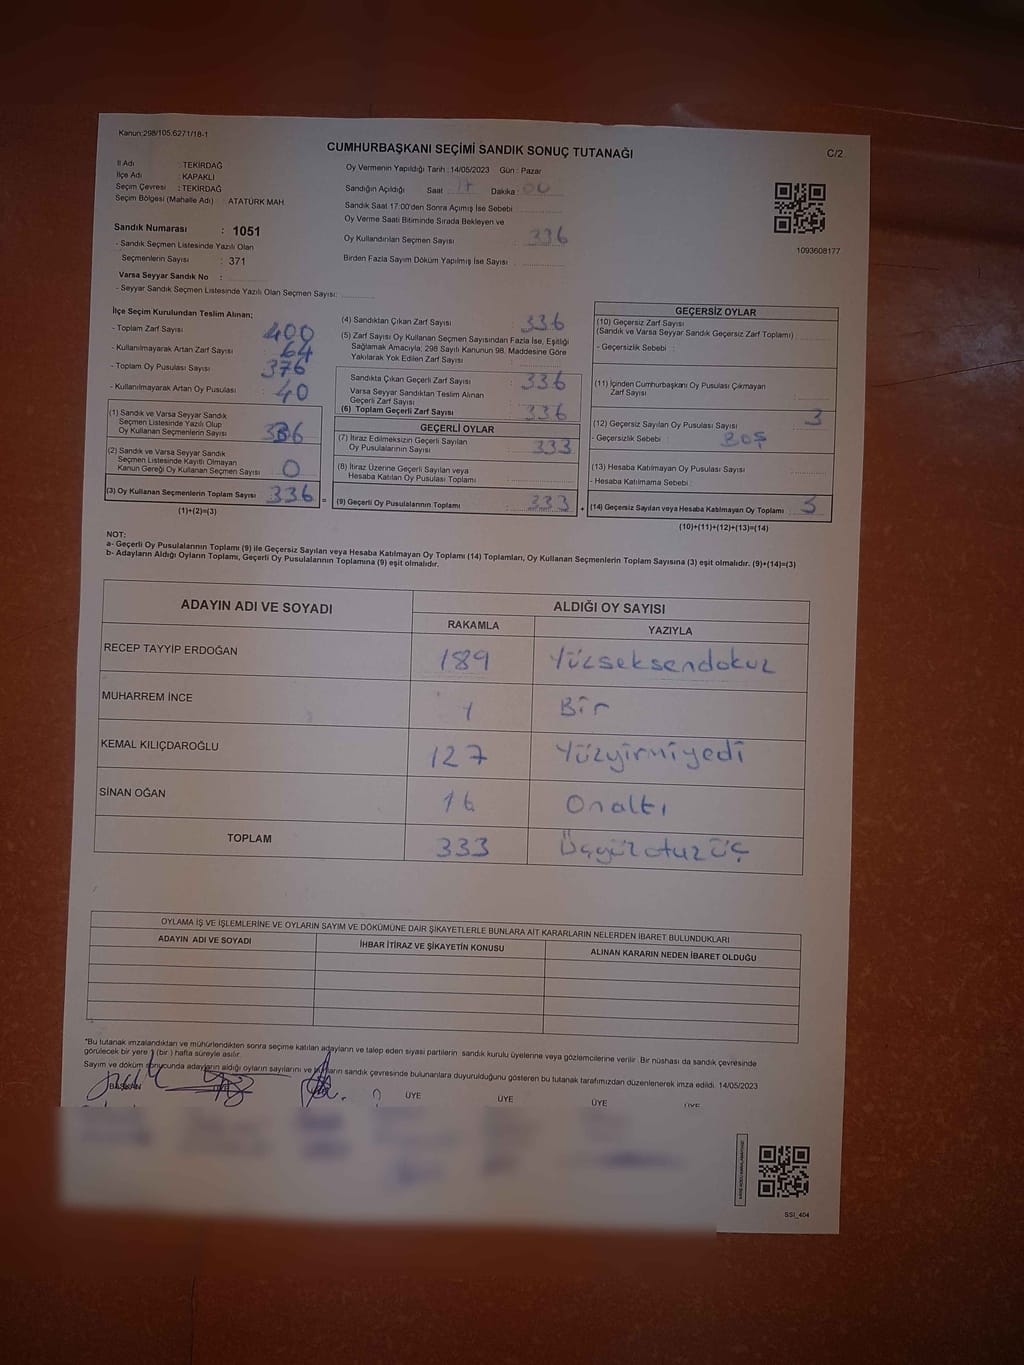 Kanun:298/105.6271/18-1
CUMHURBAŞKANI SEÇİMİ SANDIK SONUÇ TUTANAĞI
C/2
İl Adı : TEKİRDAĞ
İlçe Adı : KAPAKLI
Seçim Çevresi : TEKİRDAĞ
Seçim Bölgesi (Mahalle Adı) : ATATÜRK MAH.
Oy Vermenin Yapıldığı Tarih :14/05/2023 Gün : Pazar
Sandığın Açıldığı Saat 17 Dakika : 00
Sandık Saat 17:00'den Sonra Açımış İse Sebebi
Oy Verme Saati Bitiminde Sırada Bekleyen ve
Oy Kullandırılan Seçmen Sayısı : 336
Birden Fazla Sayım Döküm Yapılmış İse Sayısı :
1093608177
Sandık Numarası : 1051
- Sandık Seçmen Listesinde Yazılı Olan
Seçmenlerin Sayısı : 371
Varsa Seyyar Sandık No :
- Seyyar Sandık Seçmen Listesinde Yazılı Olan Seçmen Sayısı:
İlçe Seçim Kurulundan Teslim Alınan;
- Toplam Zarf Sayısı 400
- Kullanılmayarak Artan Zarf Sayısı 64
- Toplam Oy Pusulası Sayısı 376
- Kullanılmayarak Artan Oy Pusulası : 40
(1) Sandık ve Varsa Seyyar Sandık
Seçmen Listesinde Yazılı Olup
Oy Kullanan Seçmenlerin Sayısı 336
(2) Sandık ve Varsa Seyyar Sandık
Seçmen Listesinde Kayıtlı Olmayan
Kanun Gereği Oy Kullanan Seçmen Sayısı 0
(3) Oy Kullanan Seçmenlerin Toplam Sayısı 336 =
(1)+(2)=(3)
(4) Sandıktan Çıkan Zarf Sayısı : 336
(5) Zarf Sayısı Oy Kullanan Seçmen Sayısından Fazla İse, Eşitliği
Sağlamak Amacıyla; 298 Sayılı Kanunun 98. Maddesine Göre
Yakılarak Yok Edilen Zarf Sayısı
Sandıkta Çıkan Geçerli Zarf Sayısı : 336
Varsa Seyyar Sandıktan Teslim Alınan
Geçerli Zarf Sayısı
(6) Toplam Geçerli Zarf Sayısı : 336
GEÇERLİ OYLAR
(7) İtiraz Edilmeksizin Geçerli Sayılan
Oy Pusulalarının Sayısı : 333
(8) İtiraz Üzerine Geçerli Sayılan veya
Hesaba Katılan Oy Pusulası Toplamı
(9) Geçerli Oy Pusulalarının Toplamı : 333 +
GEÇERSİZ OYLAR
(10) Geçersiz Zarf Sayısı
(Sandık ve Varsa Seyyar Sandık Geçersiz Zarf Toplamı)
- Geçersizlik Sebebi :
(11) İçinden Cumhurbaşkanı Oy Pusulası Çıkmayan
Zarf Sayısı
(12) Geçersiz Sayılan Oy Pusulası Sayısı 3
- Geçersizlik Sebebi : BOŞ
(13) Hesaba Katılmayan Oy Pusulası Sayısı
- Hesaba Katılmama Sebebi :
(14) Geçersiz Sayılan veya Hesaba Katılmayan Oy Toplamı : 3
(10)+(11)+(12)+(13)=(14)
NOT:
a- Geçerli Oy Pusulalarının Toplamı (9) ile Geçersiz Sayılan veya Hesaba Katılmayan Oy Toplamı (14) Toplamları, Oy Kullanan Seçmenlerin Toplam Sayısına (3) eşit olmalıdır. (9)+(14)=(3)
b- Adayların Aldığı Oyların Toplamı, Geçerli Oy Pusulalarının Toplamına (9) eşit olmalıdır.
ADAYIN ADI VE SOYADI ALDIĞI OY SAYISI
RAKAMLA YAZIYLA
RECEP TAYYİP ERDOĞAN 189 Yüzseksendokuz
MUHARREM İNCE 1 Bir
KEMAL KILIÇDAROĞLU 127 Yüzyirmiyedi
SİNAN OĞAN 16 Onaltı
TOPLAM 333 Üçyüzotuzüç
OYLAMA İŞ VE İŞLEMLERİNE VE OYLARIN SAYIM VE DÖKÜMÜNE DAİR ŞİKAYETLERLE BUNLARA AİT KARARLARIN NELERDEN İBARET BULUNDUKLARI
ADAYIN ADI VE SOYADI İHBAR İTİRAZ VE ŞİKAYETİN KONUSU ALINAN KARARIN NEDEN İBARET OLDUĞU
"Bu tutanak imzalandıktan ve mühürlendikten sonra seçime katılan adayların ve talep eden siyasi partilerin sandık kurulu üyelerine veya gözlemcilerine verilir. Bir nüshası da sandık çevresinde
görülecek bir yere 1 (bir ) hafta süreyle asılır.
Sayım ve döküm sonucunda adayların aldığı oyların sayılarını ve bunların sandık çevresinde bulunanlara duyurulduğunu gösteren bu tutanak tarafımızdan düzenlenerek imza edildi. 14/05/2023
BAŞKAN ÜYE ÜYE ÜYE ÜYE
SSI_404